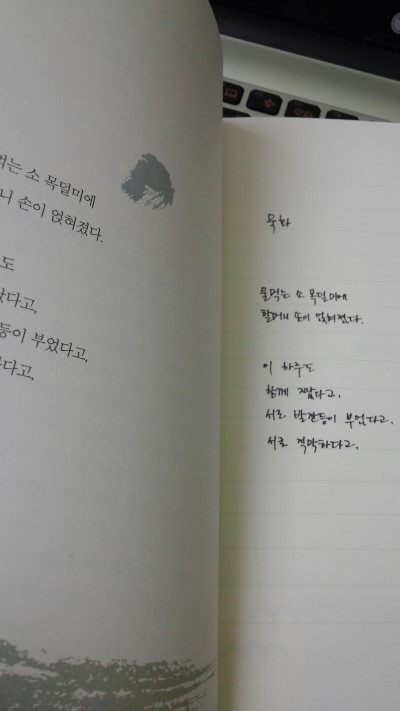 먹는 소 목덜미에
니 손이 얹혀졌다.
도
났다고,
등이 부었다고,
다고,
묵화
물먹는 소 목덜미에
할머니 손이 얹혀졌다.
이 하루도
함께 지났다고,
서로 발잔등이 부었다고,
서로 적막하다고,